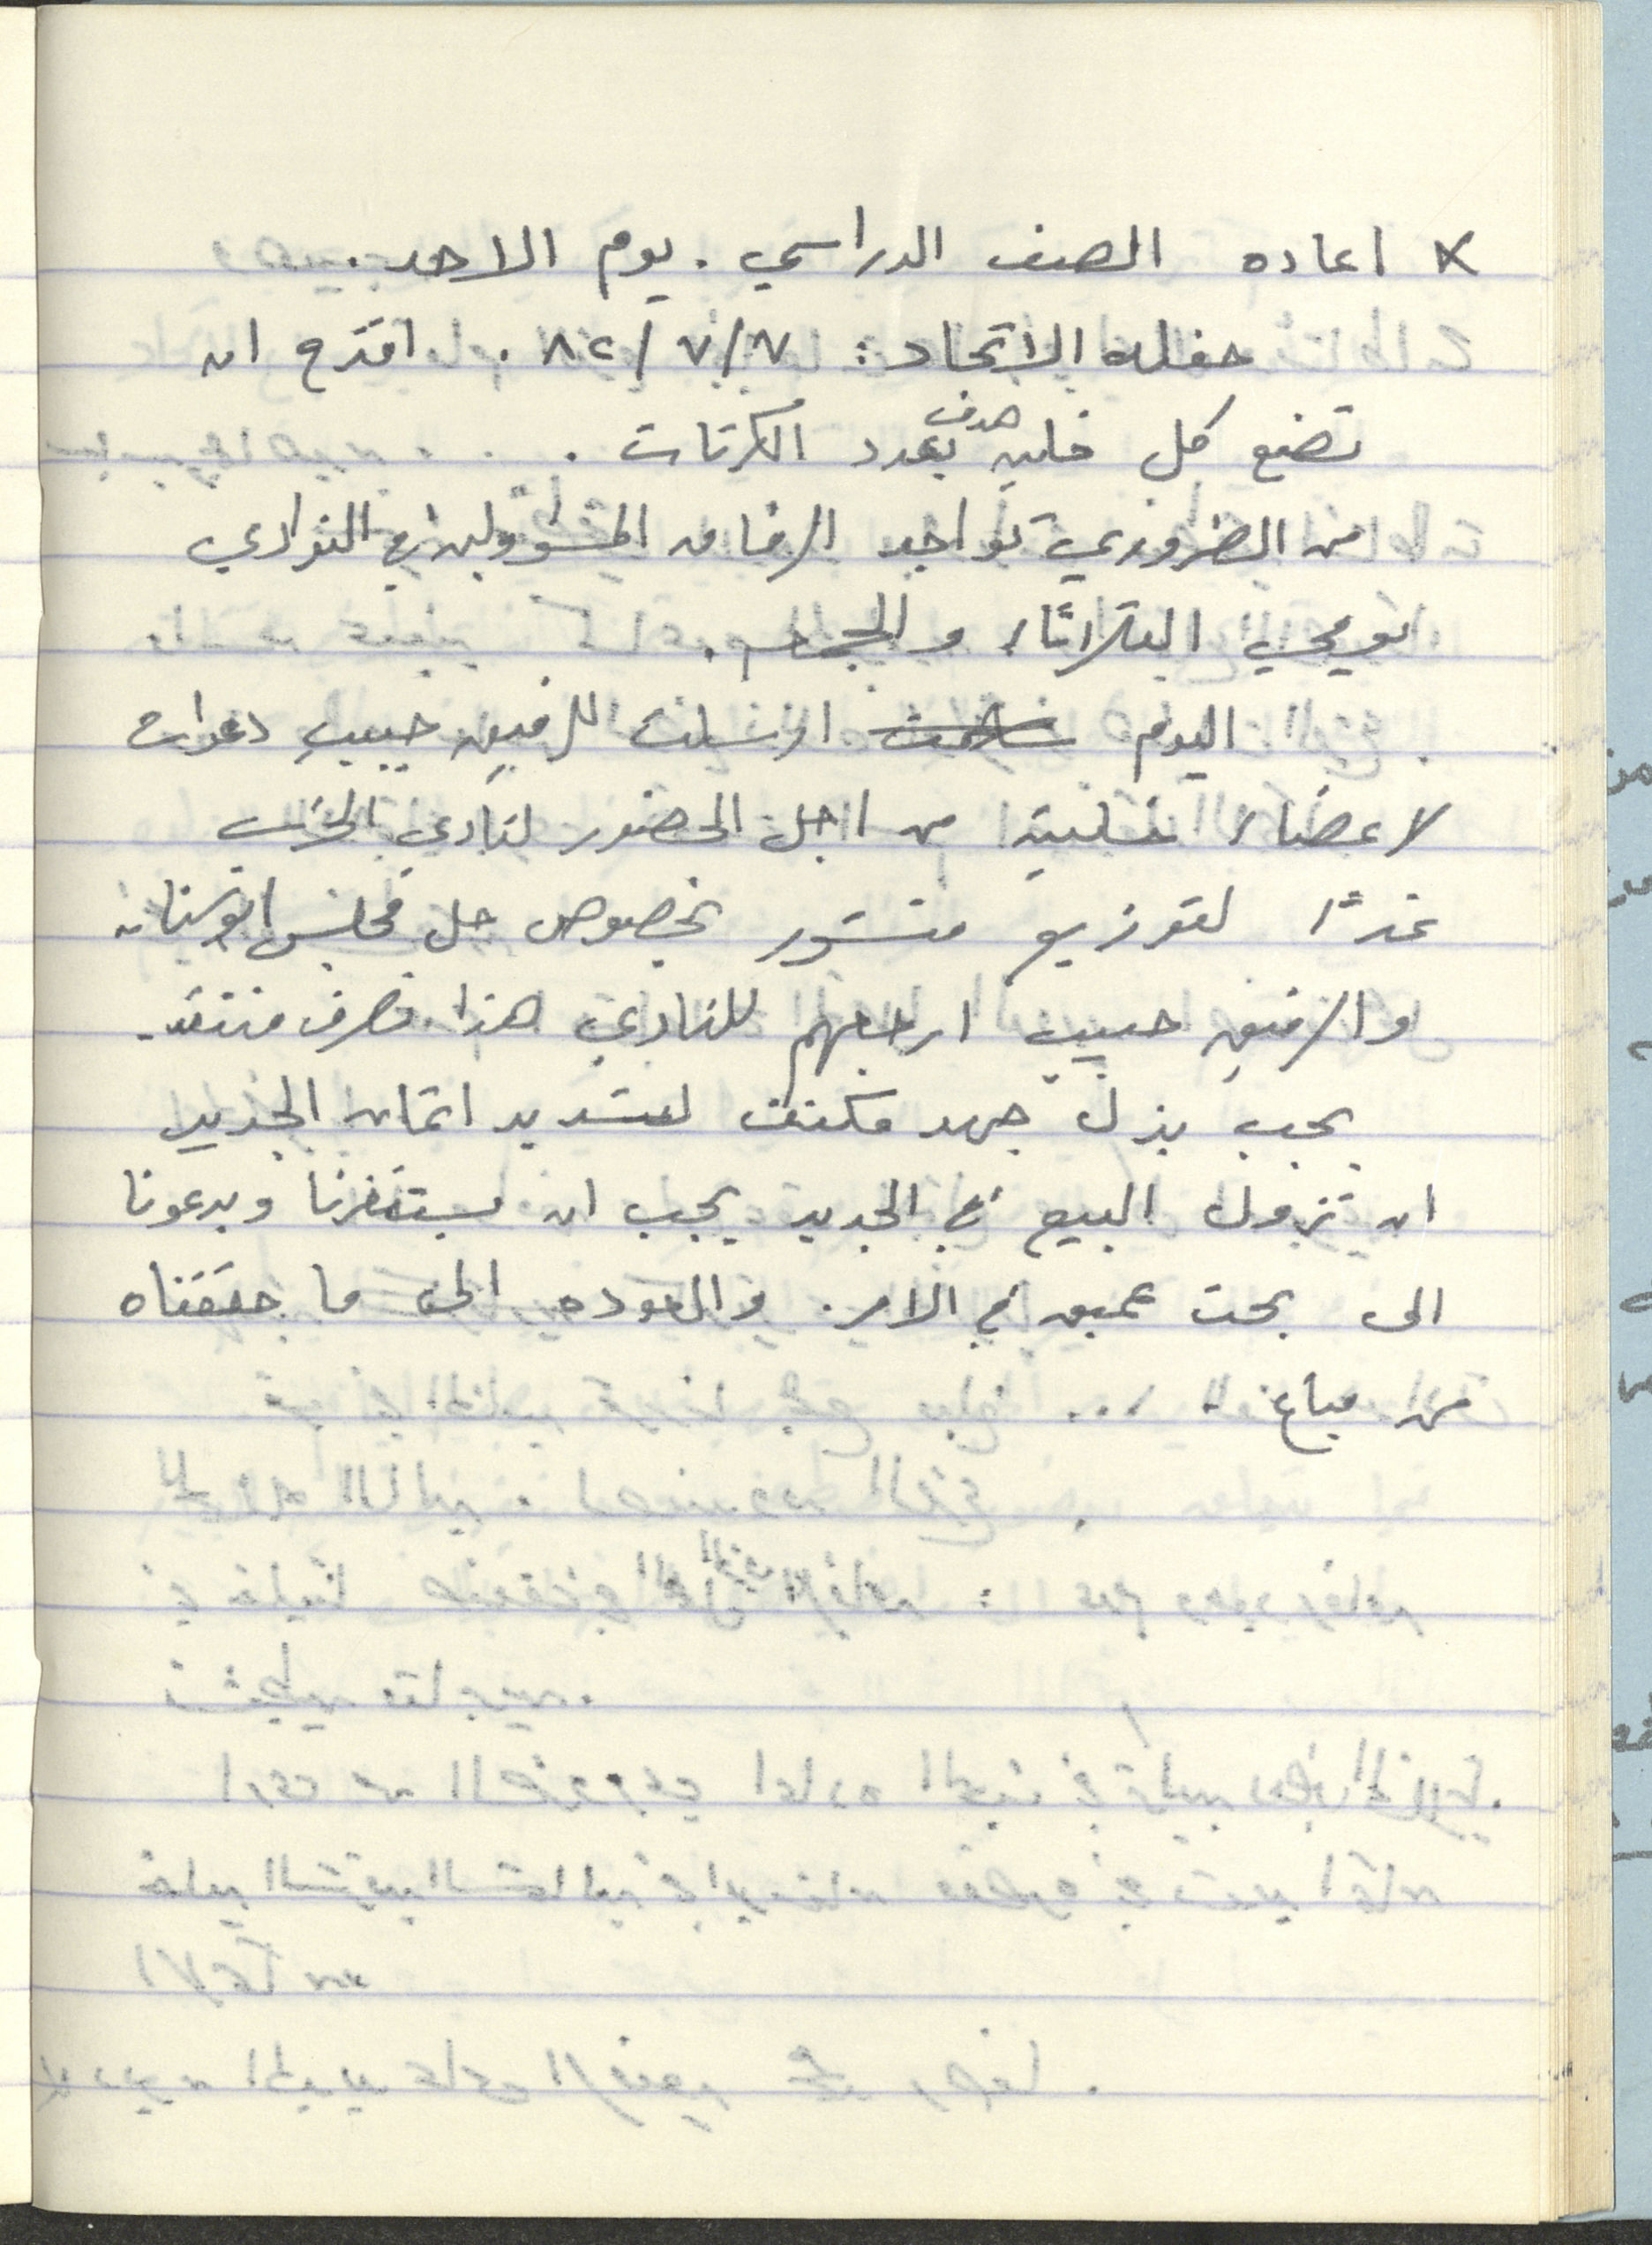 * اعاده الصف الدراسي . يوم الاحد .
حفله الاتحاد : ٧/٧/٨٢ . اقترح ان
تضع كل خليه هدف بعدد الكرتات .
من الضروري تواجد الرفاق المسؤولين في النوادي
يومي الثلاثاء والجمعه .
اليوم ارسلت للرفيق حبيب دعوات
لاعضاء خليته من اجل الحضور لنادي الحزب
غدًا لتوزيع منشور بخصوص حل مجلس ابوسنان
والرفيق حبيب ارجعهم للنادي هذا تصرف منتقد .
يجب بذل جهد مكثف لتسديد اثمان الجديد
ان نزول البيع في الجديد يجب ان يستفزنا ويدعونا
الى بحث عميق في الامر . والعوده الى ما حققناه
من مباع